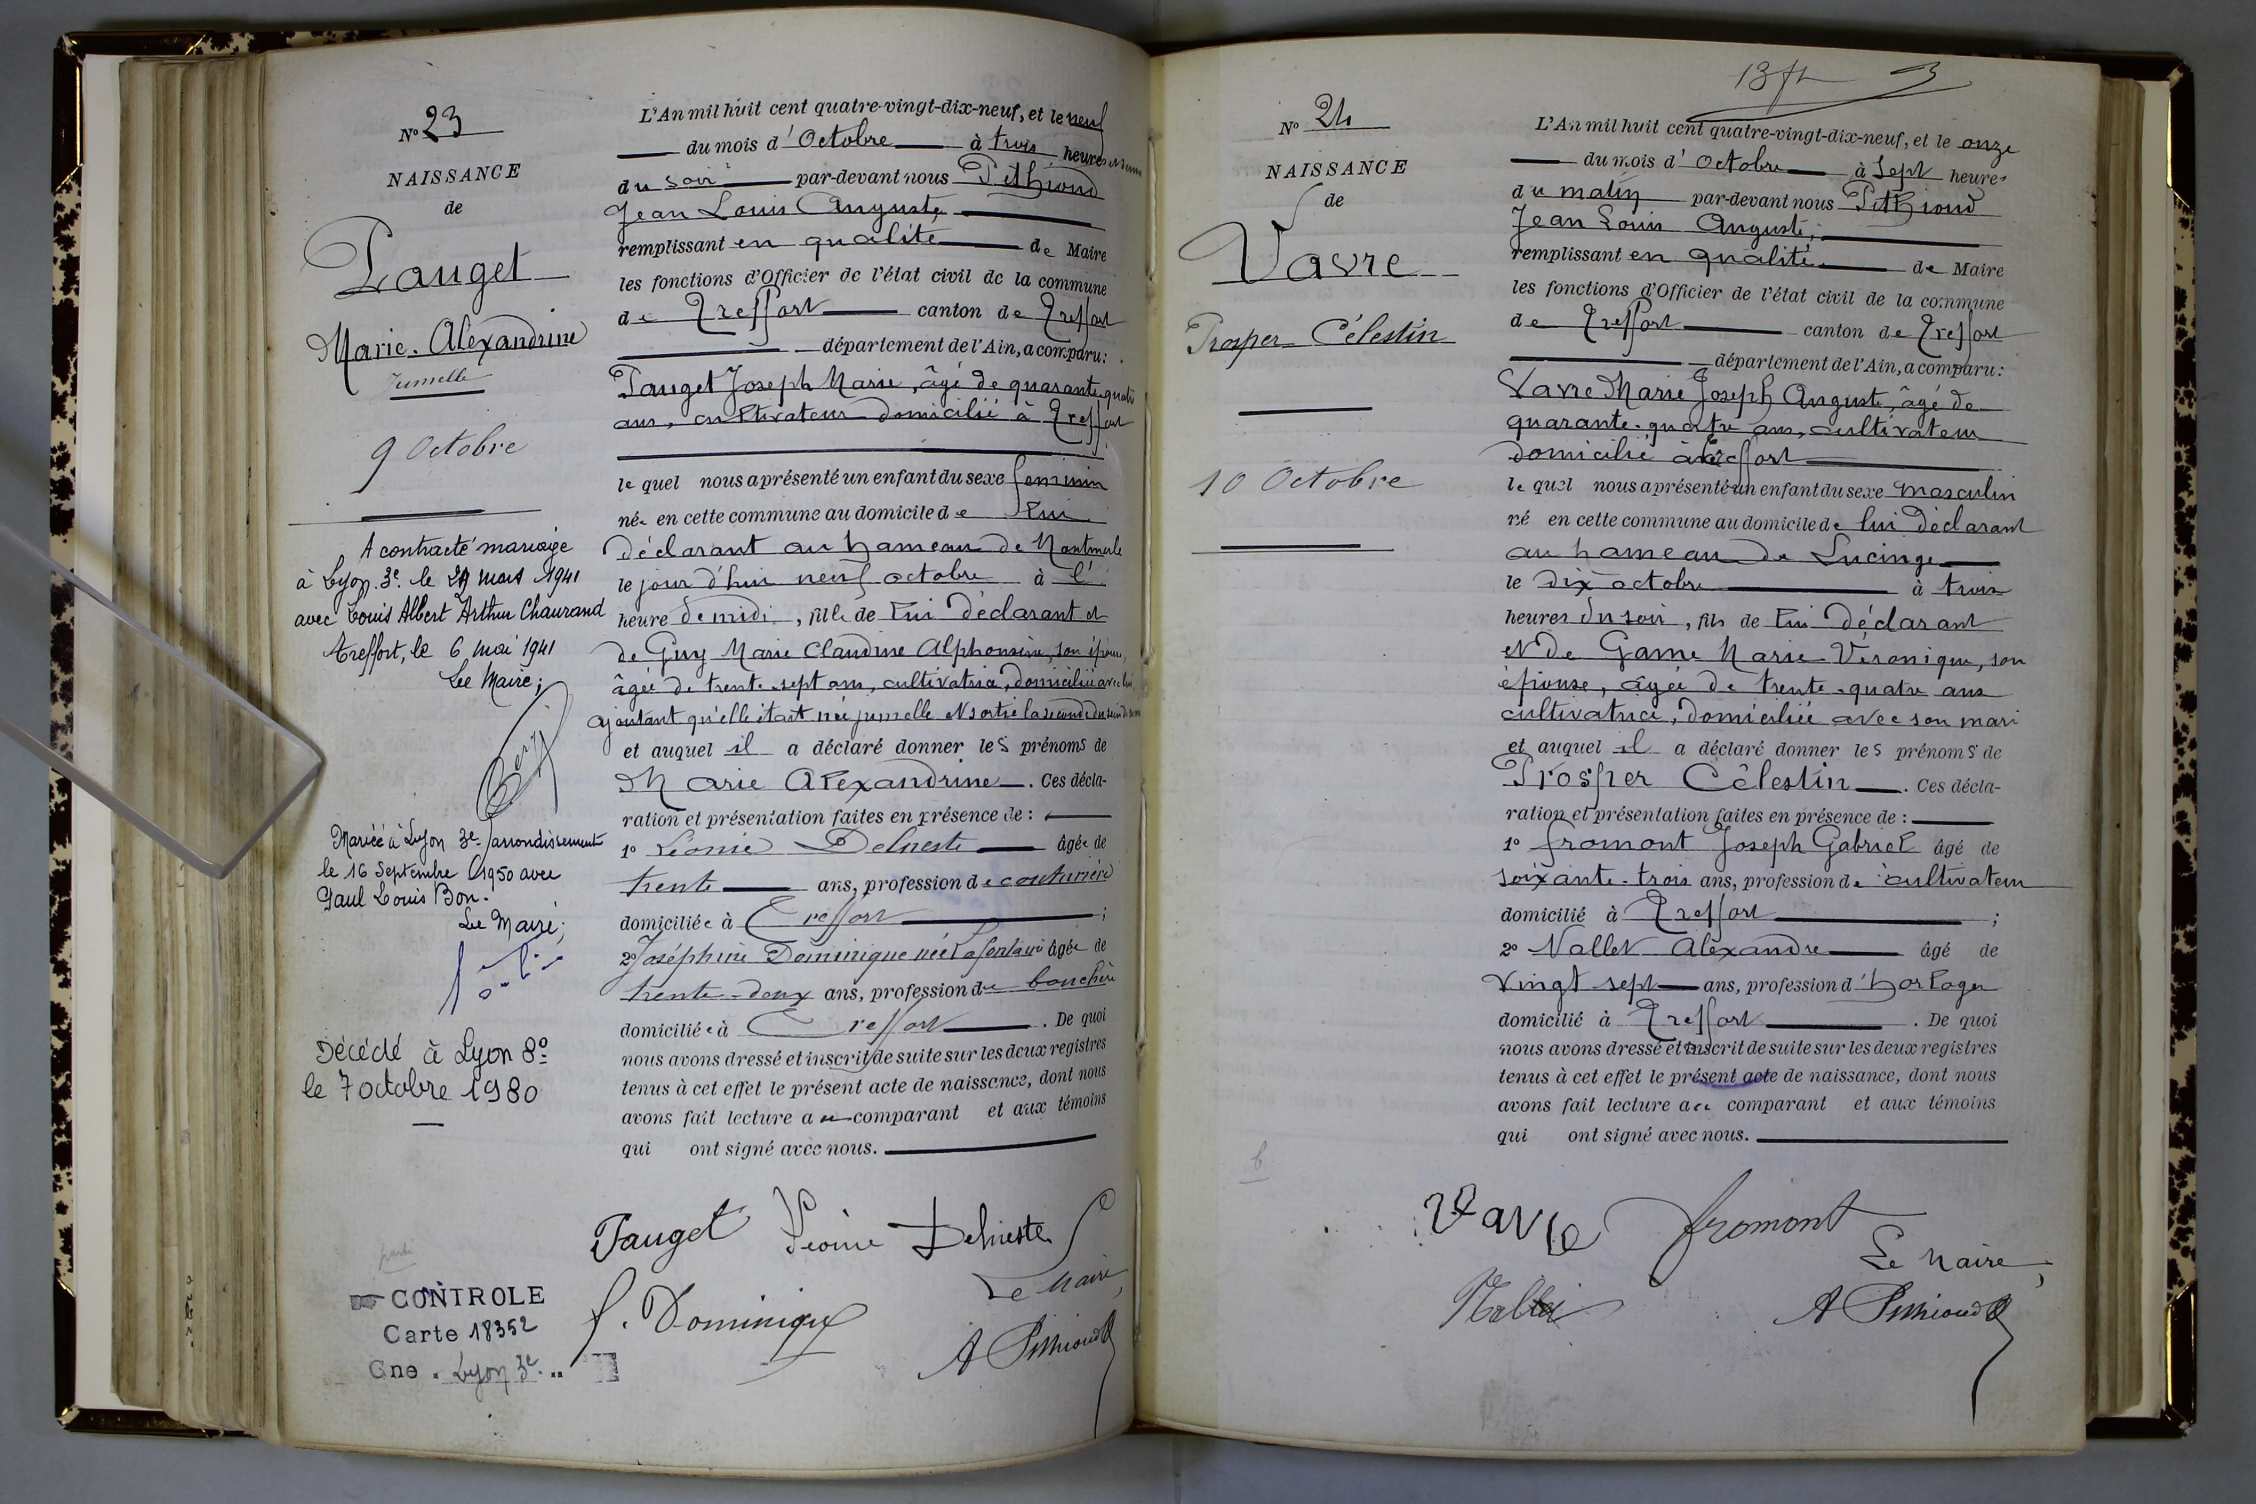 N° 23
NAISSANCE
de
Pauget
Marie. Alexandrine
Jumelle
9 Octobre
A contracté mariage
à Lyon 3e. le mars 1941
avec Louis Albert Arthur Chaurand
Treffort, le 6 mai 1941
Le Maire;
Mariée à Lyon 3e arrondissement
le 16 Septembre 1950 avec
Paul Louis Bon.
Le Maire;
Décédé à Lyon 8e
le 7 octobre 1980
CONTROLE
Carte 18352
Gne. Lyon 3e.
L'An mil huit cent quatre-vingt-dix-neuf, et le neuf
du mois d'Octobre à trois heures
du soir par-devant nous Pithioud
Jean Louis Auguste,
remplissant en qualité de Maire
les fonctions d'Officier de l'état civil de la commune
de Treffort canton de Treffort
département de l'Ain, a comparu:
Pauget Joseph Marie, âgé de quarante-quatre
ans, cultivateur domicilié à Treffort
le quel nous a présenté un enfant du sexe feminin
née en cette commune au domicile de lui
déclarant au hameau de Montmerle
le jour d'hui neuf octobre à l'
heure de midi, fille de lui déclarant et
de Guy Marie Claudine Alphonsine, son épouse,
âgée de trente-sept ans, cultivatrice, domiciliée avec lui
ajoutant qu'elle était née jumelle et sortie la seconde du sein de sa mère
et auquel il a déclaré donner les prénoms de
Marie Alexandrine. Ces décla-
ration et présentation faites en présence de:
1° Léonie Delneste âgée de
trente ans, profession de couturière
domiciliée à Treffort;
2° Joséphine Dominique née Lafontaine âgée de
trente-deux ans, profession de bouchère
domiciliée à Treffort. De quoi
nous avons dressé et inscrit de suite sur les deux registres
tenus à cet effet le présent acte de naissance, dont nous
avons fait lecture au comparant et aux témoins
qui ont signé avec nous.
Pauget Léonie Delneste
Le Maire,
f. Dominique
A Pithioud
N° 24
NAISSANCE
de
Vavre
Prosper Célestin
10 Octobre
L'An mil huit cent quatre-vingt-dix-neuf, et le onze
du mois d'octobre à sept heures
du matin par-devant nous Pithioud
Jean Louis Auguste,
remplissant en qualité de Maire
les fonctions d'Officier de l'état civil de la commune
de Treffort canton de Treffort
département de l'Ain, a comparu:
Vavre Marie Joseph Auguste, âgé de
quarante-quatre ans, cultivateur
domicilié à Treffort
le quel nous a présenté un enfant du sexe masculin
né en cette commune au domicile de lui déclarant
au hameau de Lucinge
le dix octobre à trois
heures du soir, fils de lui déclarant
et de Game Marie Véronique, son
épouse, âgée de trente-quatre ans
cultivatrice, domiciliée avec son mari
et auquel il a déclaré donner les prénoms de
Prosper Célestin. Ces décla-
ration et présentation faites en présence de:
1° fromont Joseph Gabriel âgé de
soixante-trois ans, profession de cultivateur
domicilié à Treffort;
2° Nallet Alexandre âgé de
vingt sept ans, profession d'horloger
domicilié à Treffort. De quoi
nous avons dressé et inscrit de suite sur les deux registres
tenus à cet effet le présent acte de naissance, dont nous
avons fait lecture au comparant et aux témoins
qui ont signé avec nous.
Vavre fromont
Le Maire,
Nallet A Pithioud